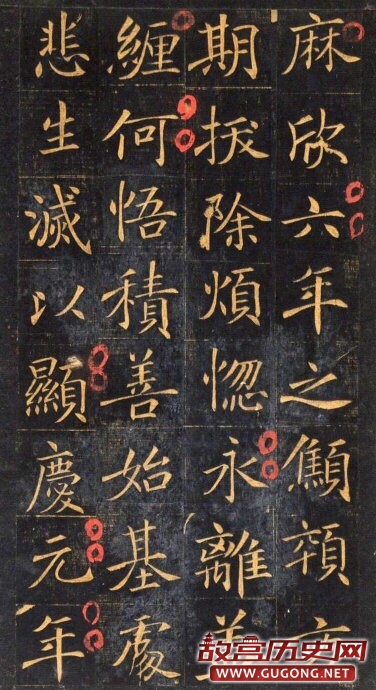 麻欣六年之顦顇方
期拔除煩惱永離蓋
纏何悟積善始基處
悲生滅以顯慶元年
故宫历史网
WWW.GUGONG.NET